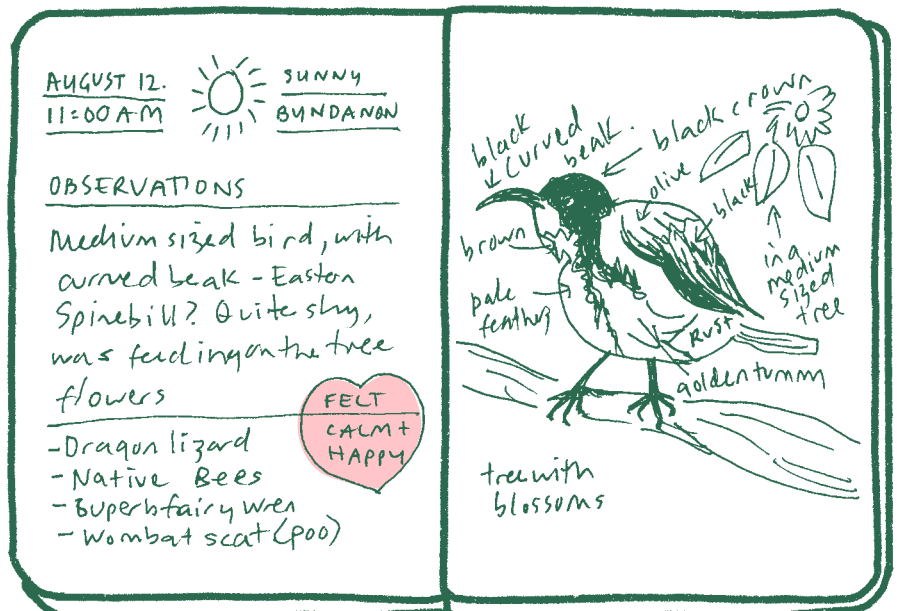 AUGUST 12.
11:00 AM
SUNNY
BUNDANON
OBSERVATIONS
Medium sized bird, with
curved beak - Easton
Spinebill? Quite shy,
was feeding on the tree
flowers
FELT
CALM +
HAPPY
- Dragon lizard
- Native Bees
- Superb fairy wren
- Wombat scat (poo)
black
curved
beak.
black crown
olive
black
brown
pale
feathers
in a
medium
sized
tree
Rust
golden tummy
tree with
blossoms